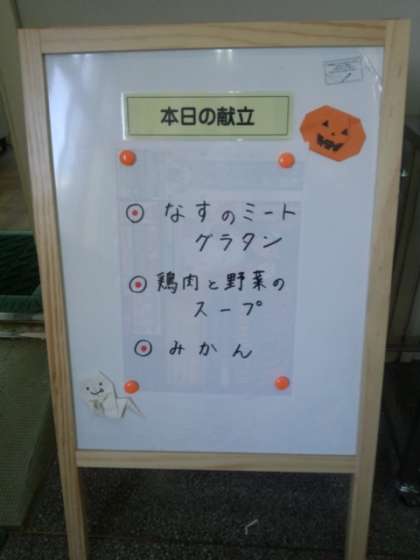 本日の献立
なすのミート
グラタン
鶏肉と野菜の
スープ
みかん